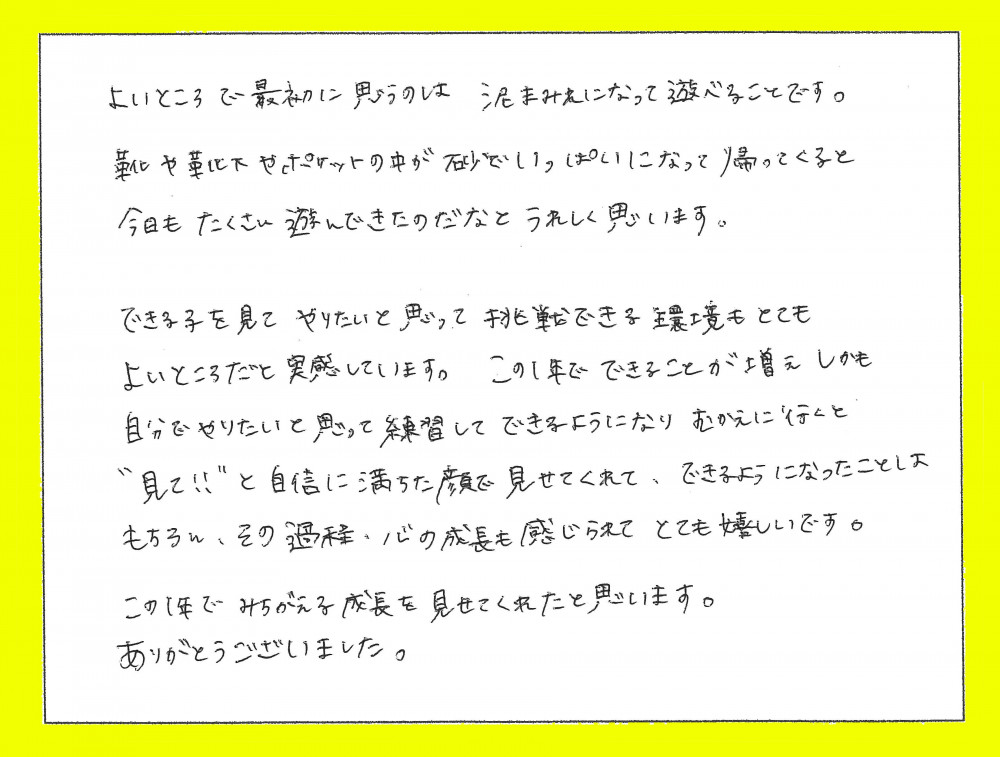 よいところで最初に思うのは 泥まみれになって遊べることです。
靴や靴下やポケットの中が砂でいっぱいになって帰ってくると
今日もたくさん遊んできたのだなとうれしく思います。
できる子を見てやりたいと思って挑戦できる環境もとても
よいところだと実感しています。 この1年でできることが増えしかも
自分でやりたいと思って練習してできるようになりむかえに行くと
"見て!!"と自信に満ちた顔で見せてくれて、できるようになったことは
もちろん、その過程、心の成長も感じられてとても嬉しいです。
この1年でみちがえる成長を見せてくれたと思います。
ありがとうございました。